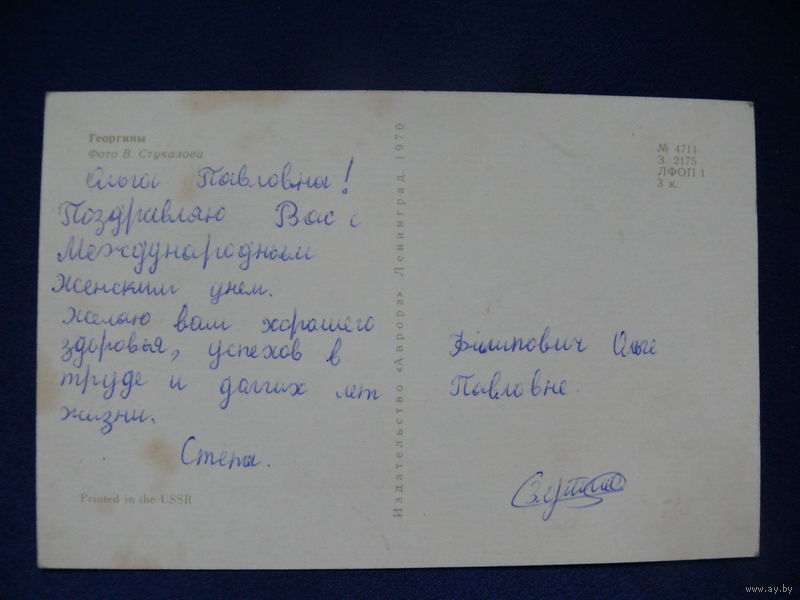 Георгины
Фото В. Стукалова
Ольга Павловна!
Поздравляю Вас с
Международным
женским днем.
Желаю вам хорошего
здоровья, успехов в
труде и долгих лет
жизни.
Степа.
Printed in the USSR
Издательство «Аврора». Ленинград. 1970
№ 4711
З. 2175
ЛФОП 1
3 к.
Філипович Ольге
Павловне.
www.ay.by